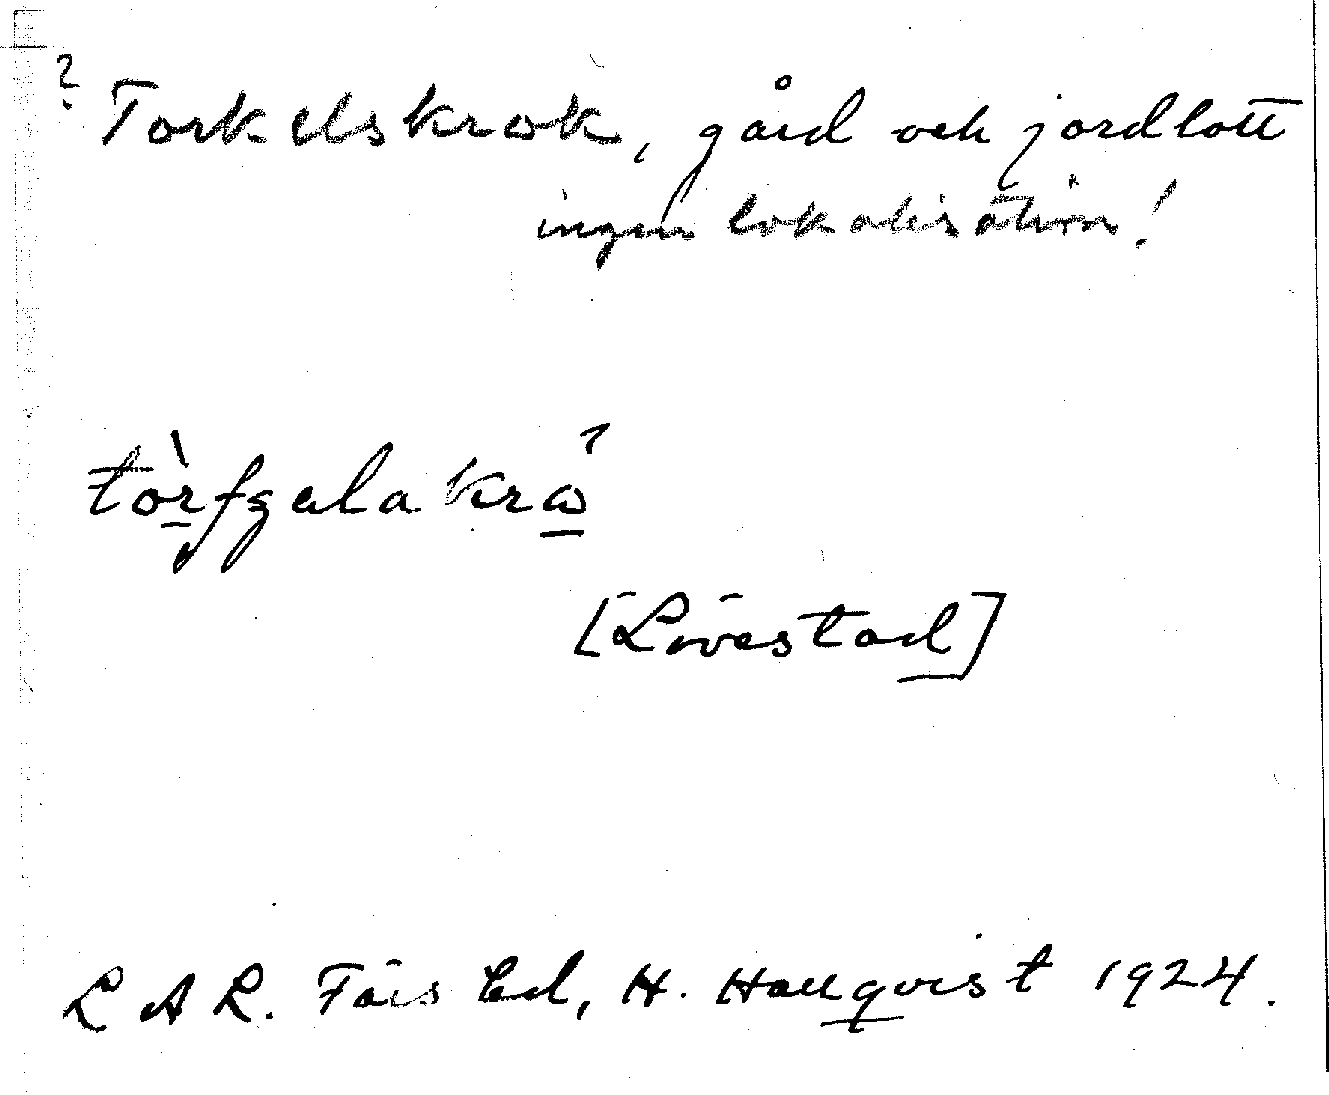 ? Torkelskrok, gård och jordlott
ingen lokalisation!
[Lövestad]
L A L. Färs hd, H. Hallqvist 1924.